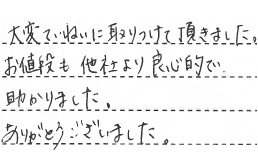 大変ていねいに取りつけて頂きました。
お値段も他社より良心的で
助かりました。
ありがとうございました。